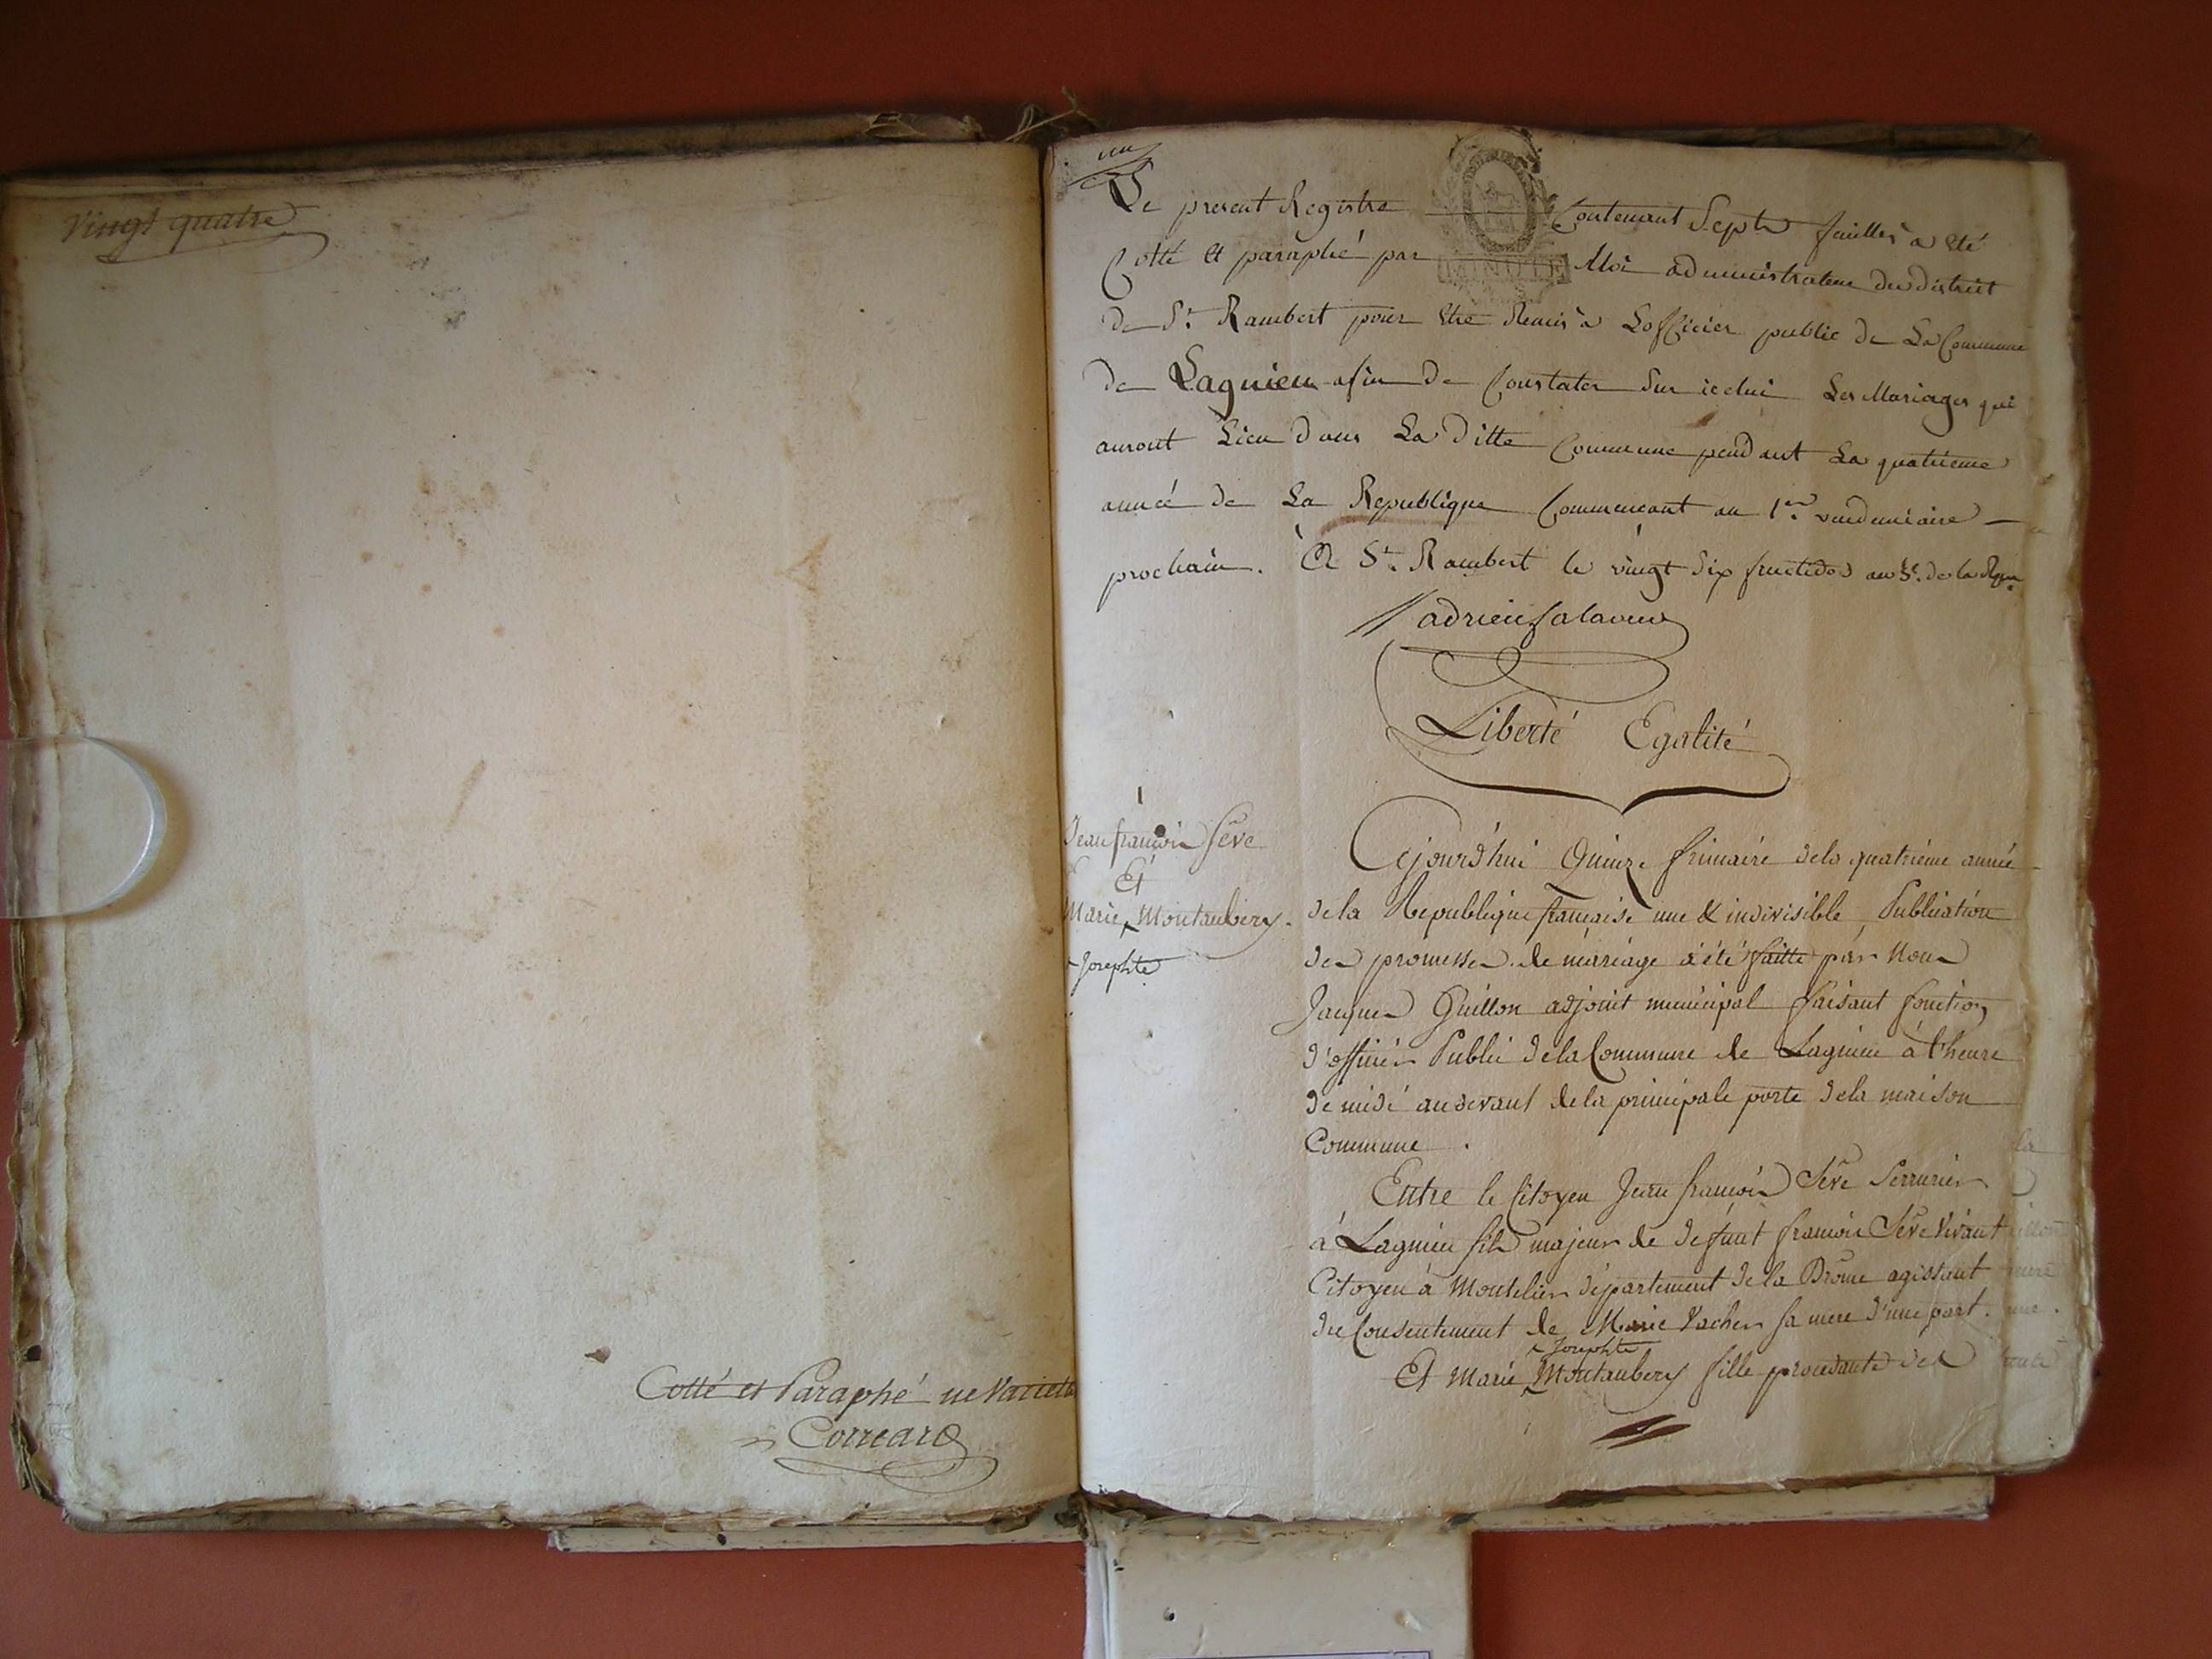 Vingt quatre
Cotté et Paraphé ne Varietu
Correard
un
Le present Registre Contenant Sept feuilles a eté
Cotté et paraphé par Moi administrateur du district
de St. Rambert pour etre Remis a Lofficier public de La Commune
de Lagnieu afin de Constater Sur icelui Les Mariages qui
auront Lieu dans La ditte Commune pendant La quatrieme
année de La Republique Commencant au 1er vendemiaire
prochain. A St. Rambert le vingt Six fructidor an 3e. de la Rep
MINUTE
adrien
Liberté Egalité
1
Jean françois Seve
Et
Marie Montaubery.
Josephte
Cejourd'hui Quinze frimaire dela quatrieme année
dela Republique française une & indivisible, Publication
des promesses de mariage a été faitte par Nous
Jacques Guillon adjoint municipal faisant fonction
d'officier Public dela Commune de Lagnieu à l'heure
de midi audevant dela principale porte dela maison
Commune.
Entre le Citoyen Jean françois Seve Serrurier
à Lagnieu fils majeur de defunt françois Seve Vivant
Citoyen à Montelier département de la Drôme agissant
du Consentement de Marie Vacher sa mere d'une part.
Josephte
Et Marie Montaubery fille procedante de